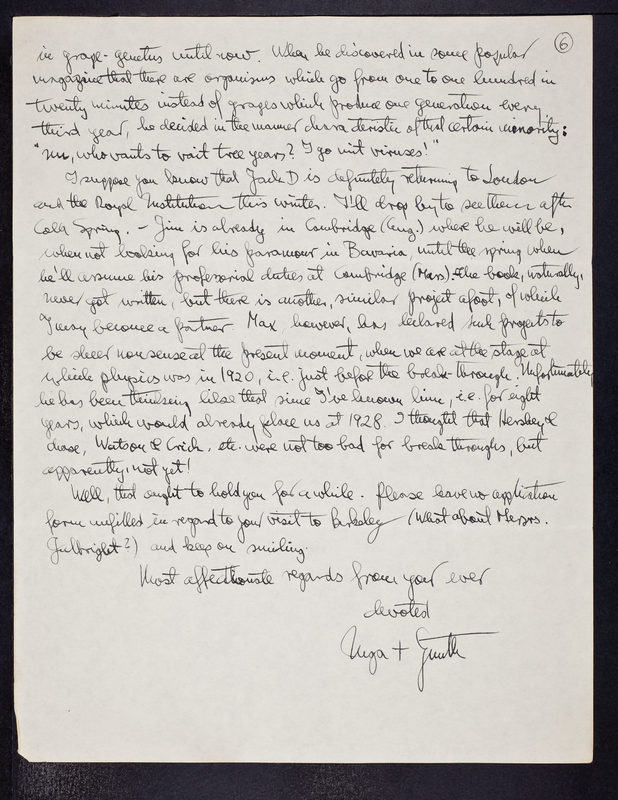 6
in grape-genetics until now. When he discovered in some popular
magazine that there are organisms which go from one to one hundred in
twenty minutes instead of grapes which produce one generation every
third year, he decided in the manner characteristic of that certain minority:
", who wants to vait tree years? I go mit viruses!"
I suppose you know that Jack D is definitely returning to London
and the Royal Institution this winter. I'll drop by to see them after
Cold Spring. - Jim is already in Cambridge (Eng.) where he will be,
when not looking for his paramour in Bavaria, until the spring when
he'll assume his professorial duties at Cambridge (Mass). The book, naturally,
never got written, but there is another, similar project afoot, of which
I may become a partner. Max, however, has declared such projects to
be sheer nonsense at the present moment, when we are at the stage at
which physics was in 1920, i.e. just before the break-through. Unfortunately
he has been thinking like that since I've known him, i.e. for eight
years, which would already place us at 1928. I thought that Hershey &
Chase, Watson & Crick, etc. were not too bad for break throughs, but
apparently, not yet!
Well, that ought to hold you for a while. Please leave no application
form unfilled in regard to your visit to Berkeley (What about Messrs.
Fulbright?) and keep on smiling.
Most affectionate regards from your ever
devoted
Inga + Gunth